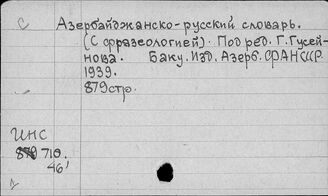 С Азербайджанско-русский словарь.
(С фразеологией). Под ред. Г. Гусей-
нова. Баку. Изд. Азерб. ФАН СССР.
1939.
879 стр.
ИНС
710.
46